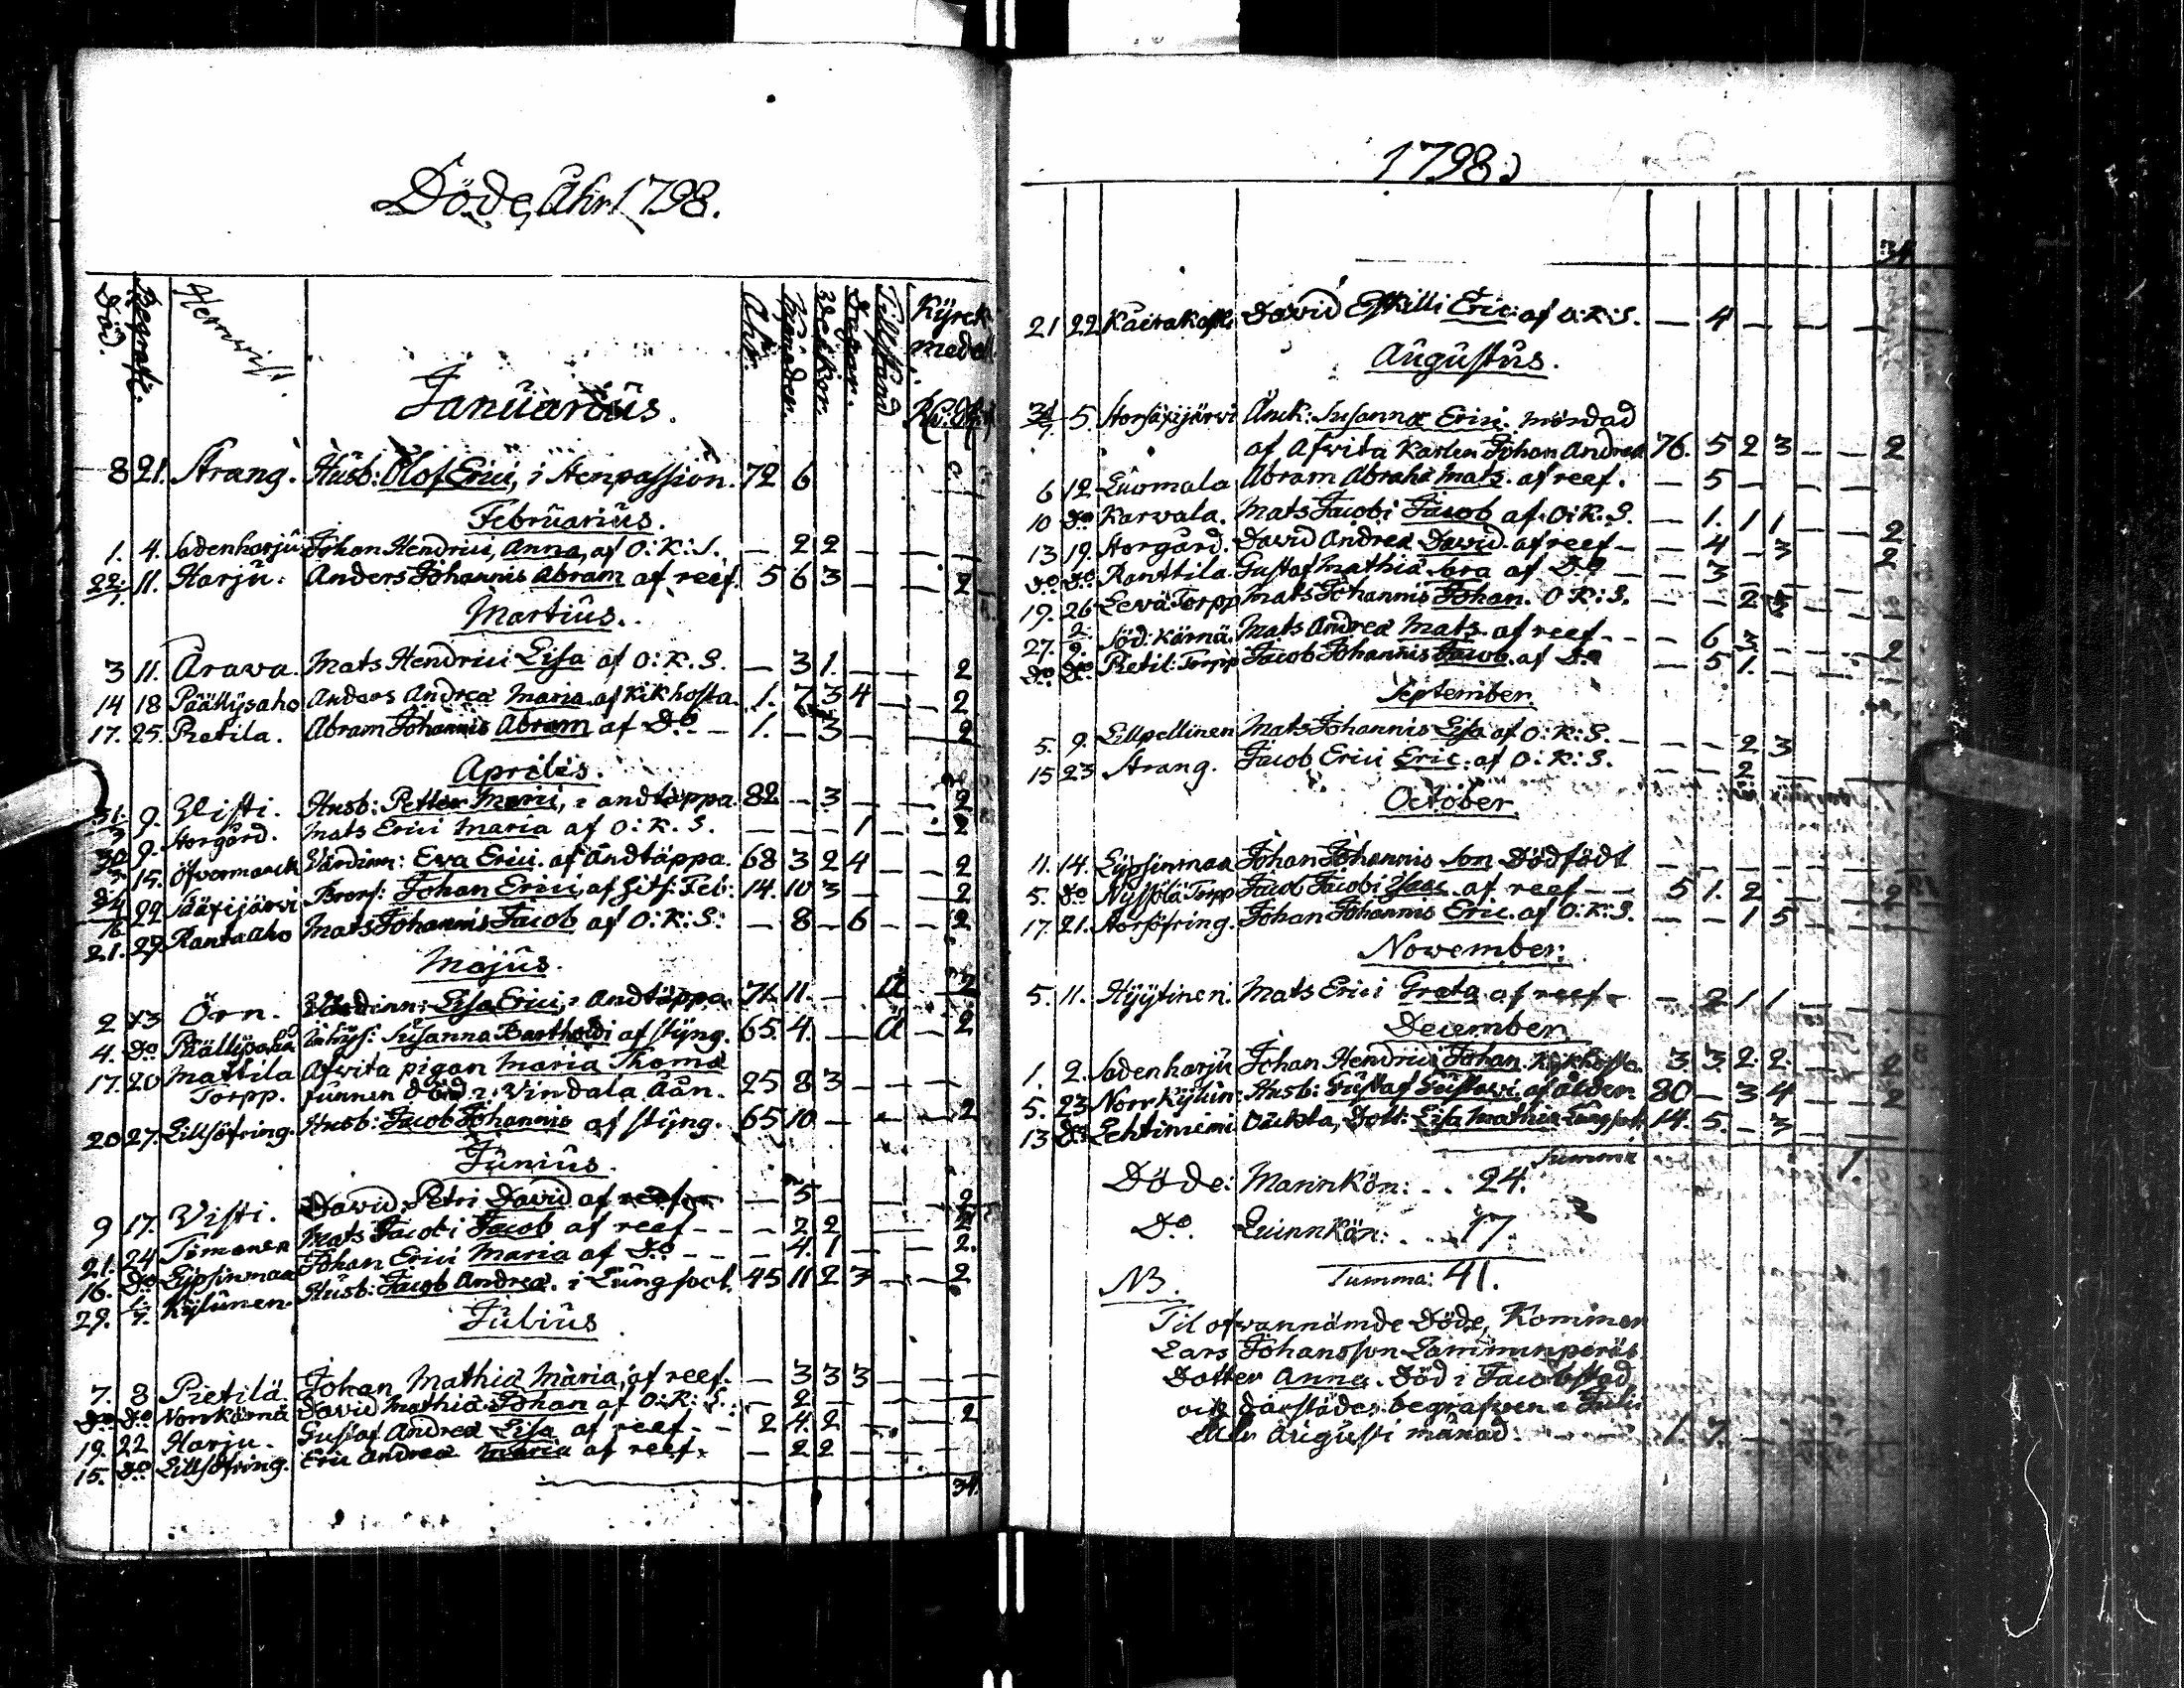 Döde, Åhr 1798.
Död. Begrafn. Hemvist. Åhr. Månader. Veckor. Dagar. Tillstånd Kyrck medel.
Januarius.
8 21. Strang. Husb: Olof Erici, i Stenpassion. 72 6
Februarius.
1. 4. Sadenharju Johan Hendrici, Anna, af O: K: S. — 2 2 — — —
22/1. 11. Harju. Anders Johannis Abram af reef. 5 6 3 — — 2
Martius.
3 11. Arawa. Mats Hendrici Lisa af O: K. S. — 3 1. — — 2
14 18 Päällysaho Anders Andreæ Maria af Kikhosta. 1. 7 3 4 — — 2
17. 25. Pietila. Abram Johannis Abram af Do — 1. — 3 — — 2
Aprilis.
31/3 9. Visti. Husb: Petter Marci, i andtäppa. 82 — 3 — — 2
9. Storgård. Mats Erici Maria af O: K. S. — — — 1 — — 2
15. Öfvermarck Värdinn: Eva Erici. af andtäppa. 68 3 2 4 — 2
22 Sääxijärvi Brors: Johan Erici, af Hits: Feb: 14. 10 3 — — 2
21. 29 Rantaaho Mats Johannis Jacob af O: K: S: — 8 — 6 — — 2
Majus.
2 13 Örn. Värdinn: Lisa Erici, i Andtäppa. 71. 11. — Ä — 2
4. Do Päällysaho Inhys: Susanna Bartholdi af styng. 65. 4. — Ä — 2
17. 20 Mattila Afvita pigan Maria Thomæ
Torpp. funnen död i Vindala Åån. 25 8 3 — — —
20 27. Lillsöfring. Husb: Jacob Johannis af styng. 65 10 — — — 2
Junius.
9 17. Visti. David Petri David af reef — — 5 — — 2
21. 24 Timonen Mats Jacobi Jacob af reef — — — 2 2 — 2
16. Do Lypsinmaa Johan Erici Maria af Do — — — 4. 1 — — 2.
29. 1/7. Kylünen. Husb: Jacob Andreæ. i Lungsoct. 45 11 2 3 — — 2
Julius
7. 8 Pietilä. Johan Mathiæ Maria, af reef. — 3 3 3 — — —
Do Do Norrkärnä David Mathiæ Johan af O: K: S. — 2 — — —
19. 22 Harju. Gustaf Andreæ Lisa af reef. — 2 4. 2 — — 2
15. Do Lillsöfring. Eric Andreæ Maria af reef. — 2 2
34.
1798.
34
21 22 Kairakoski David Eskilli Eric af O: K: S. — 4 — — — —
Augustus.
31/7. 5. Storsäxijärvi Änck: Susanna Erici. mördad
af Afvita Karlen Johan Andreæ 76. 5 2 3 — — 2
6 12 Luomala Abram Abrahā Mats. af reef. — 5 —
10 Do Karvala. Mats Jacobi Jacob af O: K: S. — 1. 1 1 — 2
13 19. Storgård. David Andreæ David af reef — — 4 — 3 2
Do Do Ranttila Gustaf Mathiæ Sara af Do — — 3
19. 26 Leva Torpp Mats Johannis Johan. O: K: S. — — 2
27. 2/9. Söd: Kärnä. Mats Andreæ Mats. af reef — — — 6 3 — — 2
Do Do Pietil: Torpp Jacob Johannis Jacob. af Do — 5 1.
September.
5. 9. Lillpellinen Mats Johannis Lisa af O: K: S. — — — 2 3
15 23 Strang. Jacob Erici Eric. af O: K: S. — — 2
October
11. 14. Lypsinmaa Johan Johannis Son Dödfödt — — — —
5. Do Nyssölä Torpp Jacob Jacobi Isac af reef — — 5 1. 2 — — 2
17. 21. Storsöfring. Johan Johannis Eric. af O: K: S. — — 1 5
November.
5. 11. Hyytinen. Mats Erici Greta af reef — — 2 1 1 —
December
1. 2. Sadenharju Johan Hendrici Johan Kikhosta. 3. 3. 2. 2. — 2
5. 23 Norrkylün. Husb: Gustaf Gustavi. af ålder. 80 — 3 4 — — 2
13 Do Lehtiniemi Oäckta, Dott: Lisa Mathiæ Lungsot. 14. 5. — 3 —
Summa 1.
Döde: Mannkön: . . 24.
Do. Quinnkön: . . 17.
Summa: 41.
NB.
Til ofvannämde Döde, Kommer
Lars Johansson Lamminperäs
Dotter Anna. Död i Jacobstad
och därstädes begrafven i Julii
eller Augusti månad. — — 1. 7. —